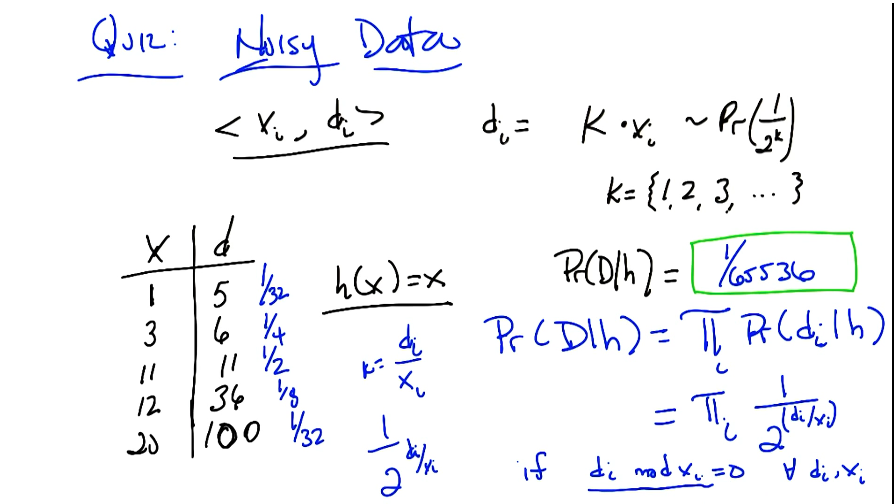 Quiz: Noisy Data
< xᵢ, dᵢ > dᵢ = K · xᵢ ~ Pr(1/2ᵏ)
K = {1, 2, 3, ... }
x d
1 5 1/32
3 6 1/4
11 11 1/2
12 36 1/8
20 100 1/32
h(x) = x
k = dᵢ/xᵢ
1/2^(dᵢ/xᵢ)
Pr(D|h) = 1/65536
Pr(D|h) = ∏ᵢ Pr(dᵢ|h)
= ∏ᵢ 1/2^(dᵢ/xᵢ)
if dᵢ mod xᵢ = 0 ∀ dᵢ, xᵢ